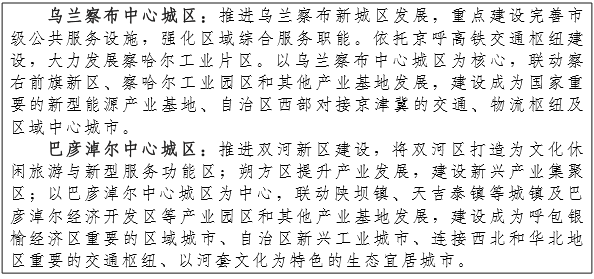 乌兰察布中心城区：推进乌兰察布新城区发展，重点建设完善市
级公共服务设施，强化区域综合服务职能。依托京呼高铁交通枢纽建
设，大力发展察哈尔工业片区。以乌兰察布中心城区为核心，联动察
右前旗新区、察哈尔工业园区和其他产业基地发展，建设成为国家重
要的新型能源产业基地、自治区西部对接京津冀的交通、物流枢纽及
区域中心城市。
巴彦淖尔中心城区：推进双河新区建设，将双河区打造为文化休
闲旅游与新型服务功能区；朔方区提升产业发展，建设新兴产业集聚
区；以巴彦淖尔中心城区为中心，联动陕坝镇、天吉泰镇等城镇及巴
彦淖尔经济开发区等产业园区和其他产业基地发展，建设成为呼包银
榆经济区重要的区域城市、自治区新兴工业城市、连接西北和华北地
区重要的交通枢纽、以河套文化为特色的生态宜居城市。